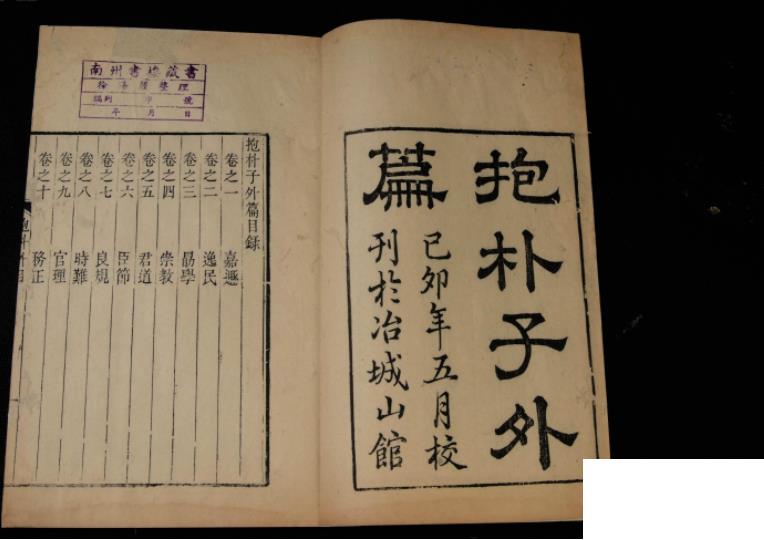 抱朴子外
篇
已卯年五月校
刊於冶城山館
南州書樓藏書
徐湯殷整理
編列 字 號
年 月 日
抱朴子外篇目錄
卷之一 嘉遯
卷之二 逸民
卷之三 勗學
卷之四 崇教
卷之五 君道
卷之六 臣節
卷之七 良規
卷之八 時難
卷之九 官理
卷之十 務正